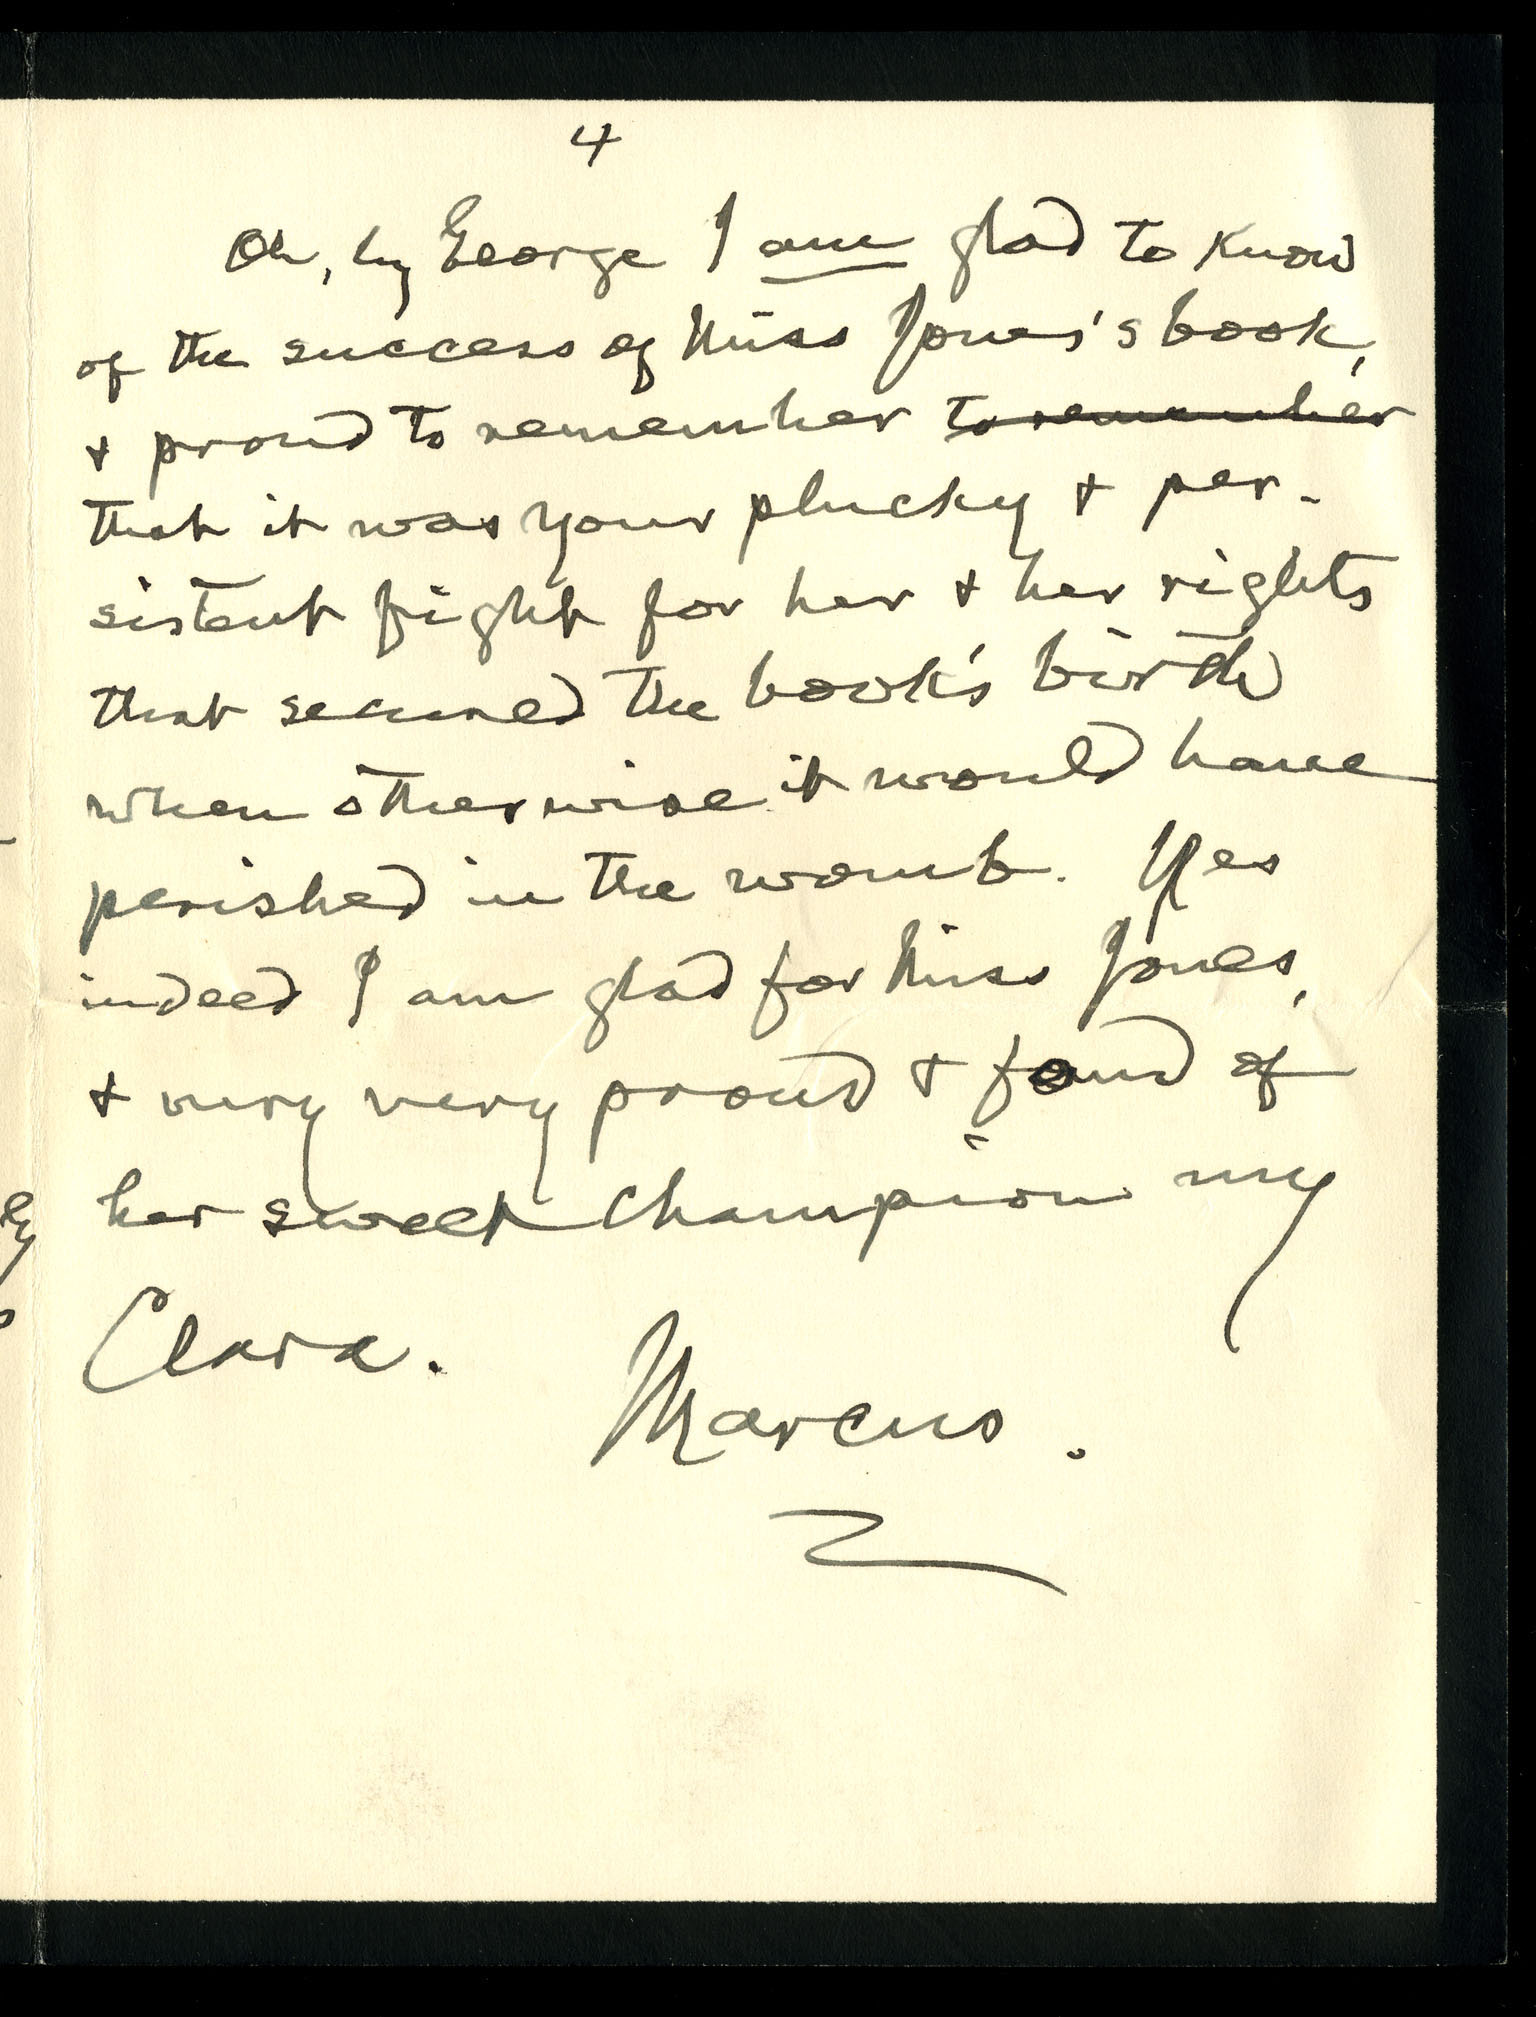 4
Oh, by George I am glad to know
of the success of Miss Jones's book,
& proud to remember to remember
that it was your plucky & per-
sistent fight for her & her rights
that secured the book's birth
when otherwise it would have
perished in the womb. Yes
indeed I am glad for Miss Jones,
& very very proud & fond of
her sweet champion my
Clara.
Marcus.